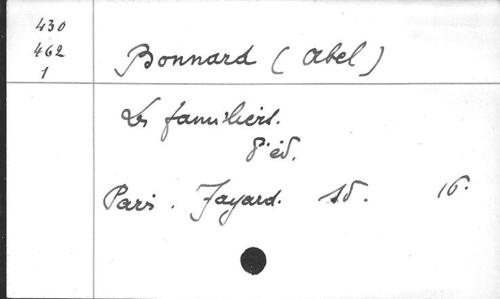 430
462
1
Bonnard (Abel)
Les familiers.
8e éd.
Paris. Fayard. sd. 16.